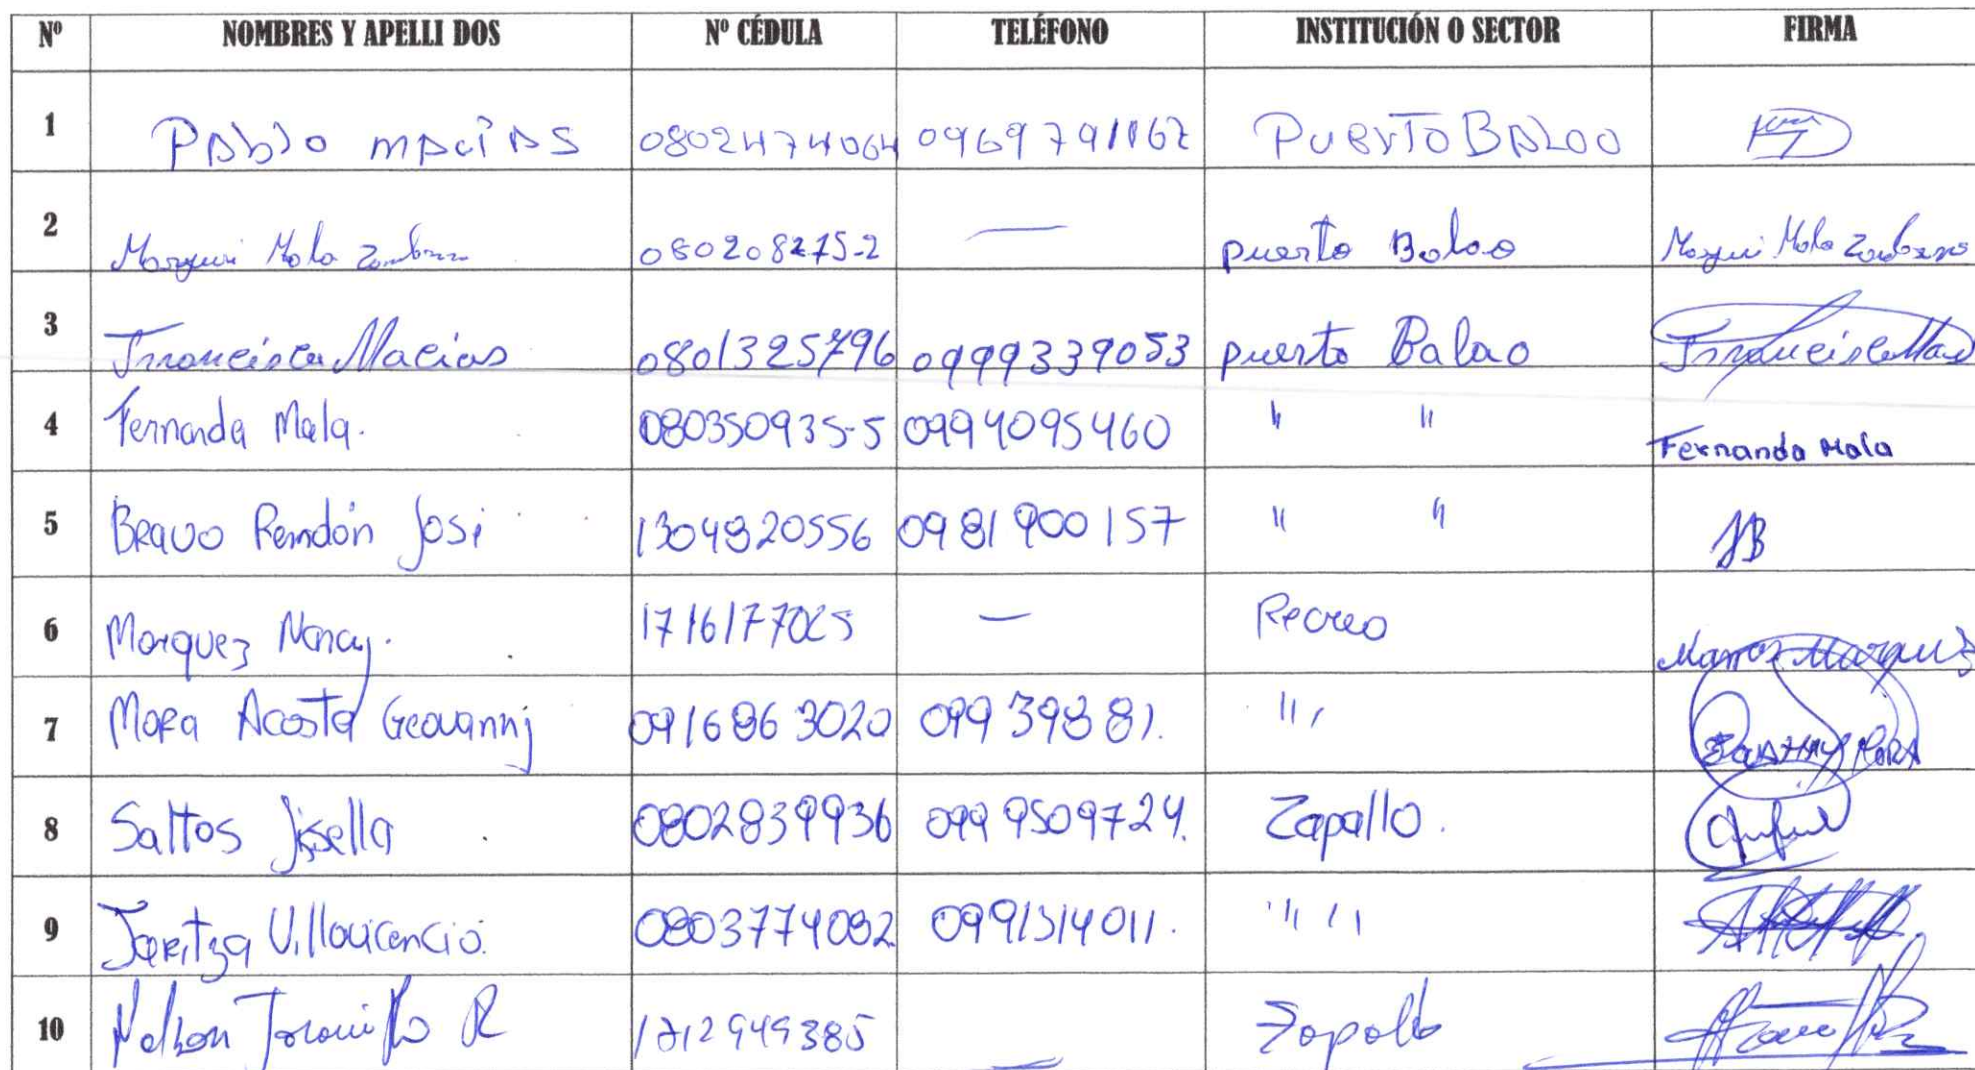 Nº NOMBRES Y APELLI DOS Nº CÉDULA TELÉFONO INSTITUCIÓN O SECTOR FIRMA
1 Pablo macías 0802474064 0969791162 PUERTO BALAO
2 Maryuri Mala Zambrano 080208275-2 — puerto Balao Maryuri Mala Zambrano
3 Francisca Macias 0801325796 0999339053 puerto Balao Francisca Mac
4 Fernanda Mala. 080350935-5 0994095460 " " Fernanda Mala
5 Bravo Rendón José 1304820556 0981900157 " " JB
6 Marquez Nancy. 1716177025 — Recreo Marquez
7 Mora Acosta Geovanny 0916863020 09939881. " Mora
8 Saltos Jisella 0802839936 0999509724. Zapallo.
9 Jaritza Villavicencio. 0803774082 0991314011. " "
10 Nelson Jaramillo R 1712949385 — Zapallo